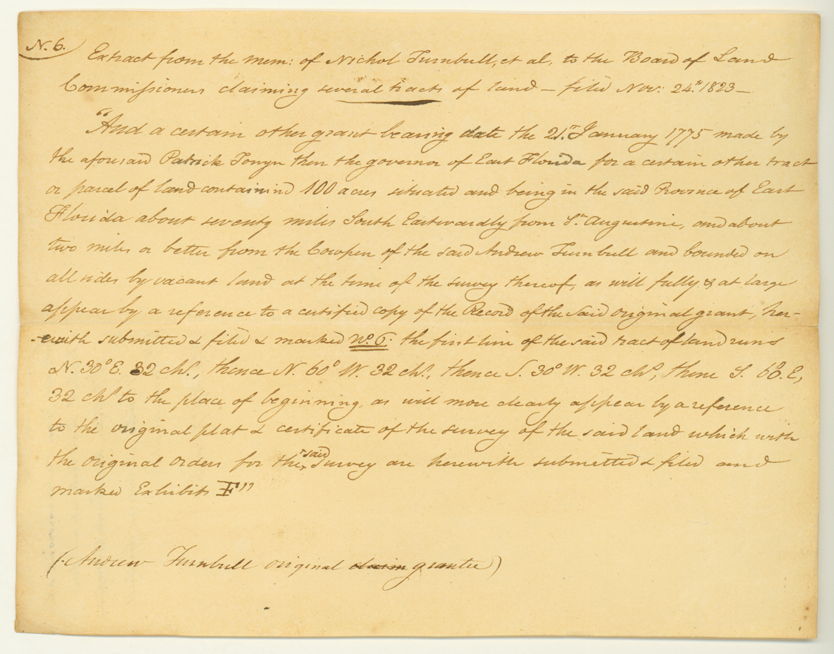 N. 6.
Extract from the mem: of Nichol Turnbull, et al, to the Board of Land
Commissioners claiming several tracts of land — filed Nov: 24.th 1823 —
"And a certain other grant bearing date the 21.st January 1775 made by
the aforesaid Patrick Tonyn then the governor of East Florida for a certain other tract
or parcel of land containind 100 acres situated and being in the said Province of East
Florida about seventy miles South Eastwardly from St. Augustine, and about
two miles or better from the Cowpen of the said Andrew Turnbull and bounded on
all sides by vacant land at the time of the survey thereof, as will fully & at large
appear by a reference to a certified copy of the Record of the said original grant, her-
-ewith submitted & filed & marked No. 6. the first line of the said tract of land runs
N. 30° E. 32 chs., thence N. 60° W. 32 chs., thence S. 30° W. 32 chs., thence S. 60° E,
32 chs to the place of beginning, as will more clearly appear by a reference
to the original plat & certificate of the survey of the said land which with
the original orders for the said survey are herewith submitted & filed and
marked Exhibits F"
(Andrew Turnbull original claim grantee)